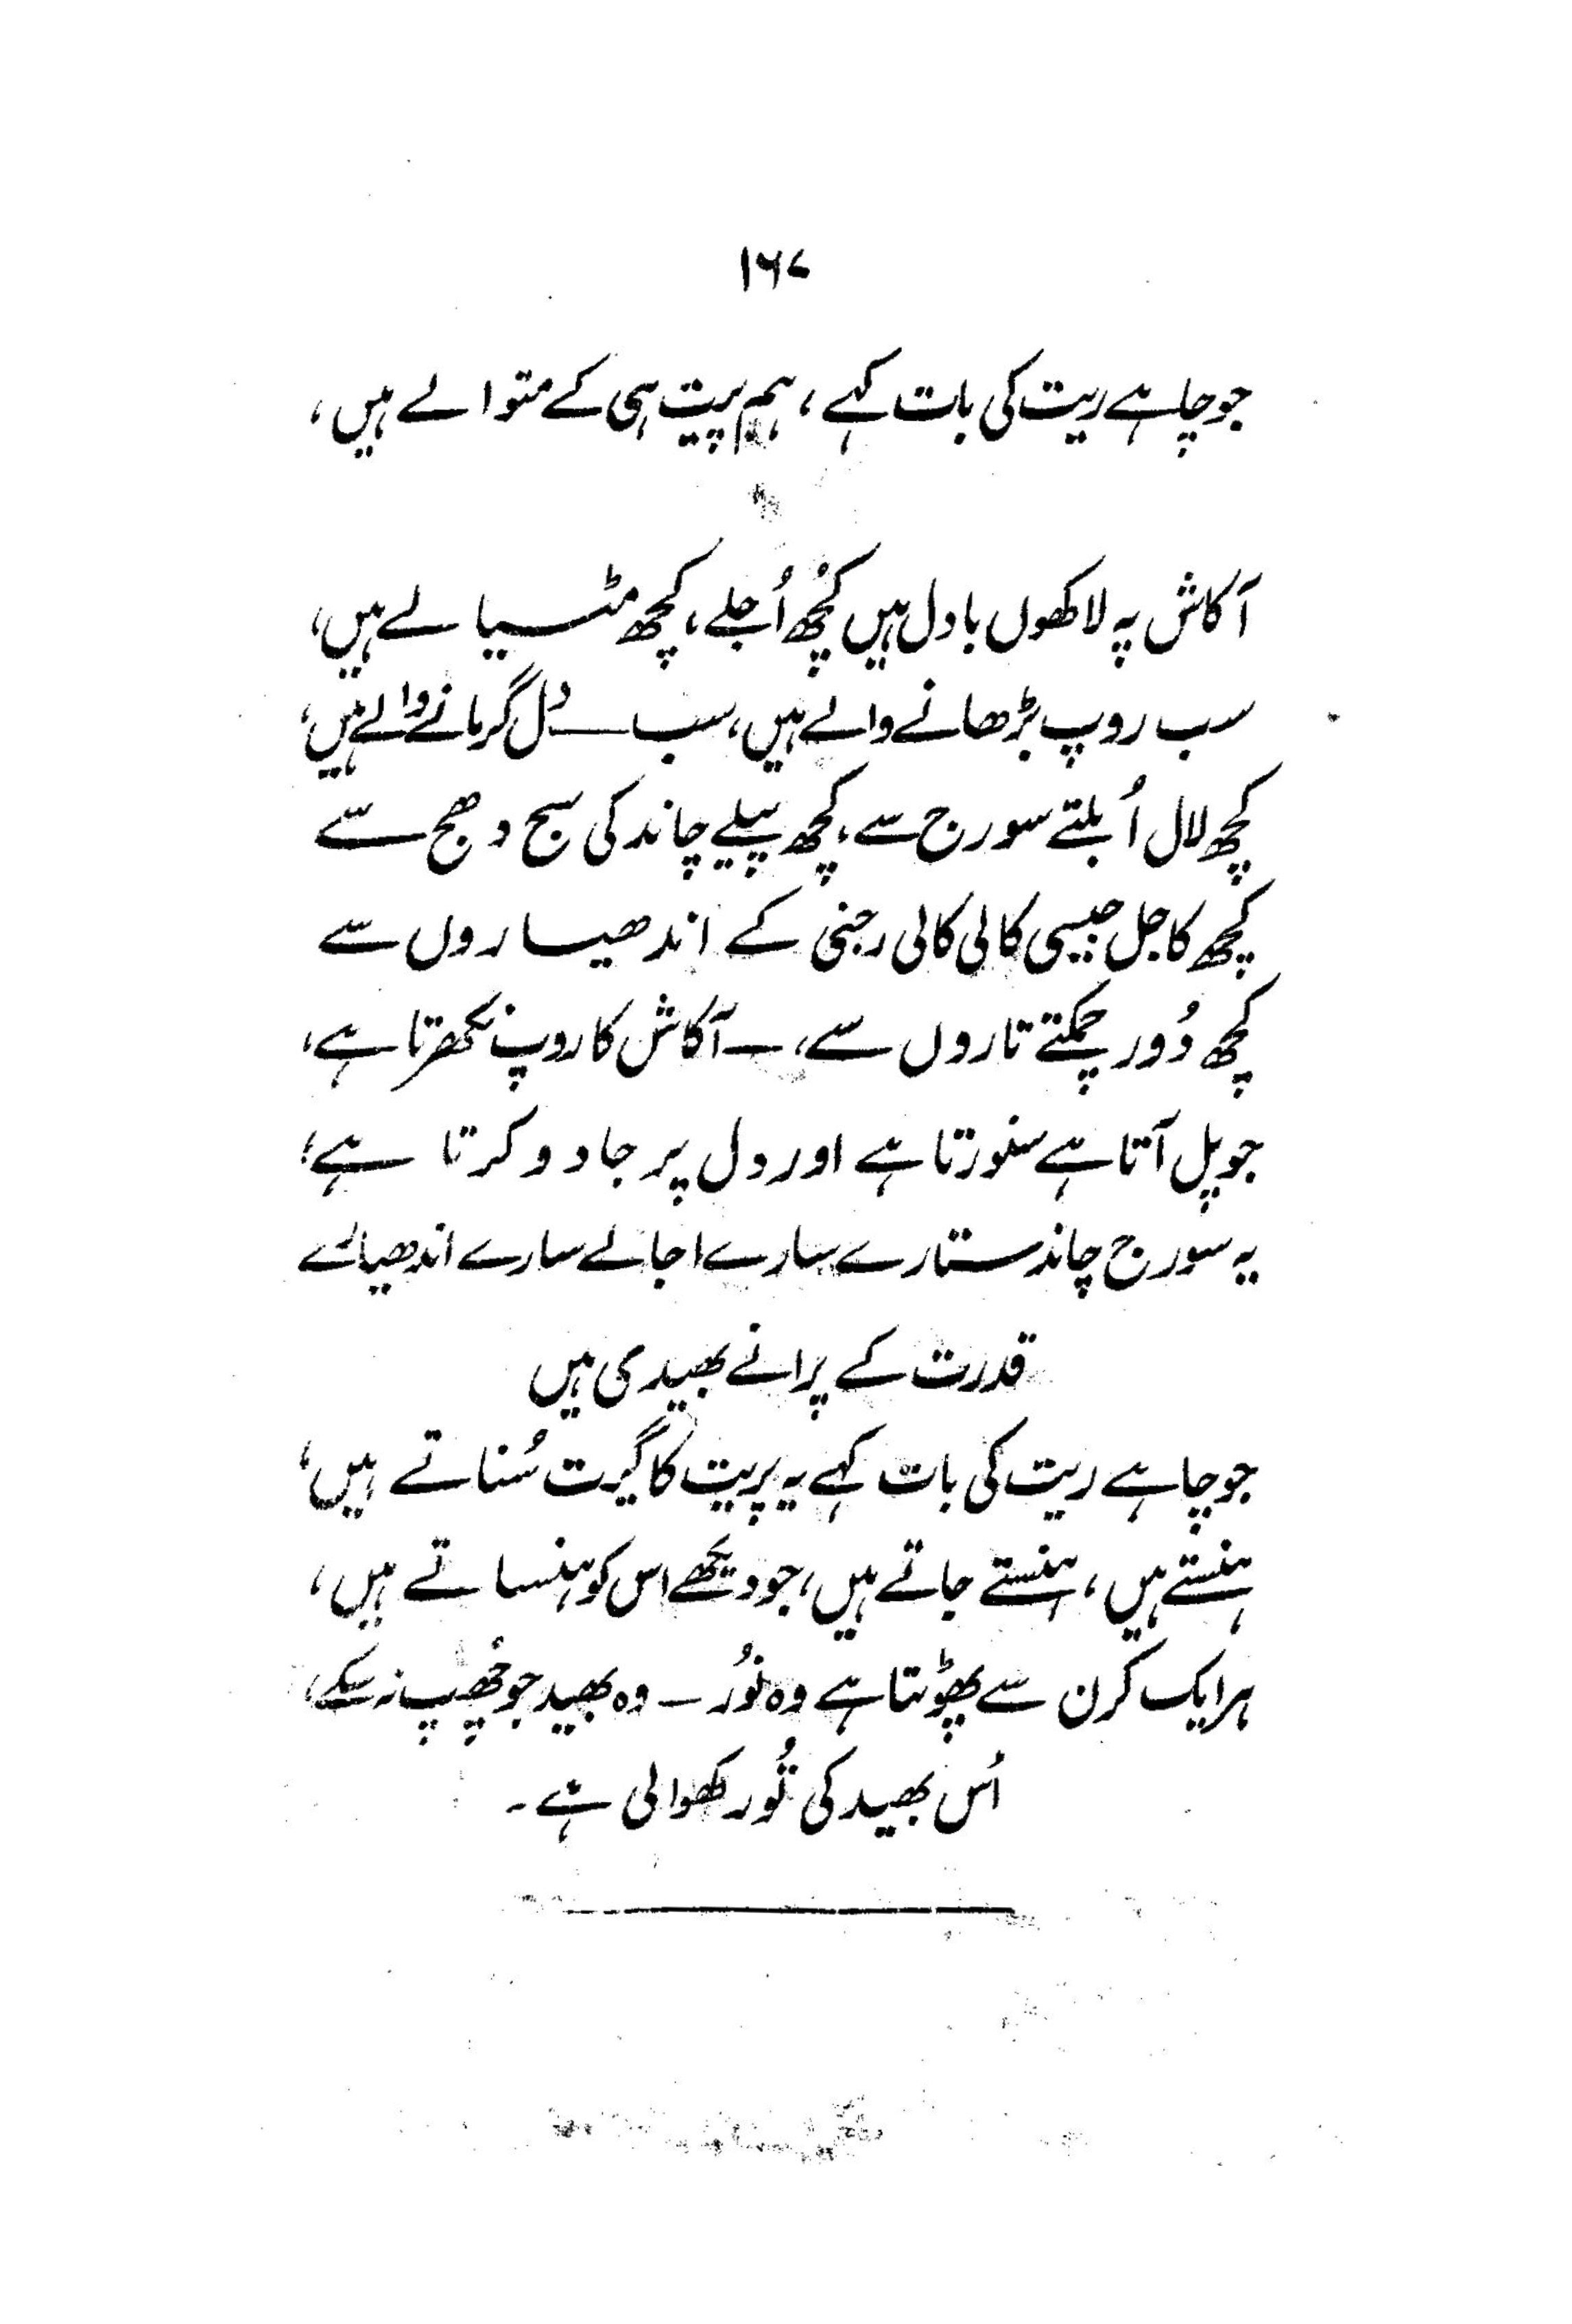 ۱۶۷
جو چاہے ریت کی بات کہے، ہم پیت ہی کے متوالے ہیں،
آکاش پہ لاکھوں بادل ہیں کچھ اُجلے، کچھ مٹیالے ہیں،
سب روپ بڑھانے والے ہیں، سب دل گرمانے والے ہیں،
کچھ لال اُبلتے سورج سے، کچھ پیلے چاند کی سج دھج سے
کچھ کاجل جیسی کالی کالی رجنی کے اندھیاروں سے
کچھ دُور چمکتے تاروں سے، ۔ آکاش کا روپ نکھرتا ہے،
جو پل آتا ہے سنورتا ہے اور دل پر جادو کرتا ہے؛
یہ سورج چاند ستارے سارے اجالے سارے اندھیالے
قدرت کے پرانے بھیدی ہیں
جو چاہے ریت کی بات کہے یہ پریت کا گیت سُناتے ہیں،
ہنستے ہیں، ہنستے جاتے ہیں، جو دیکھے اس کو ہنساتے ہیں،
ہر ایک کرن سے پھوٹتا ہے وہ نُور ۔ وہ بھید جو چھپ نہ سکے،
اُس بھید کی تُو رکھوالی ہے۔